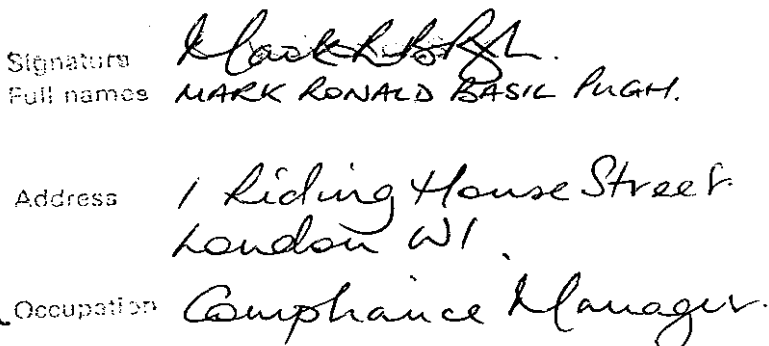 Signature Mark R B Pugh.
Full names MARK RONALD BASIL PUGH.
Address 1 Riding House Street
London W1.
Occupation Compliance Manager.